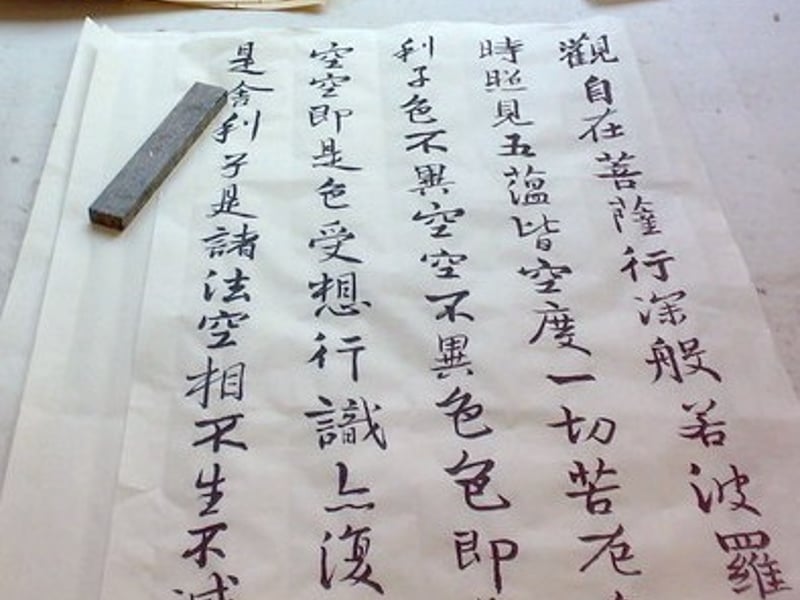 觀自在菩薩行深般若波羅
時照見五蘊皆空度一切苦厄
利子色不異空空不異色色即
空空即是色受想行識亦復
是舍利子是諸法空相不生不滅